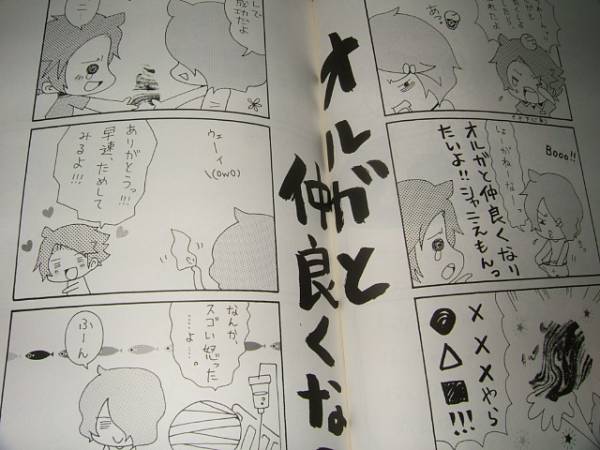 あっ
Booo!!
しょーがねーなー
オルガと仲良くなり
たいよ!!シャニえもんっ
×××やら
◎△■!!!
オルガと
仲良くな
して
成功だよ
ウェーイ
\(OwO)
ありがとうっ!!!
早速、ためして
みるよ!!!
なんか、
スゴい怒った
……よ…。
ふーん